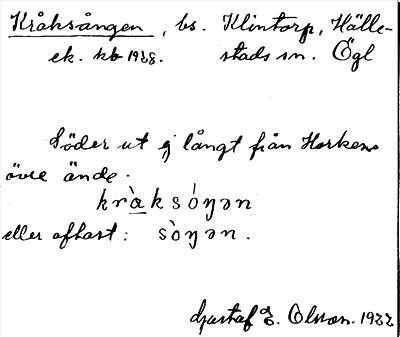 Kråksången, bs. Klintorp, Hälle-
ek. kb 1938. stads sn. Ögl
Söder ut ej långt från Horkens
övre ände.
kràksóŋən
eller oftast: sòŋən.
Gustaf E. Olsson. 1932